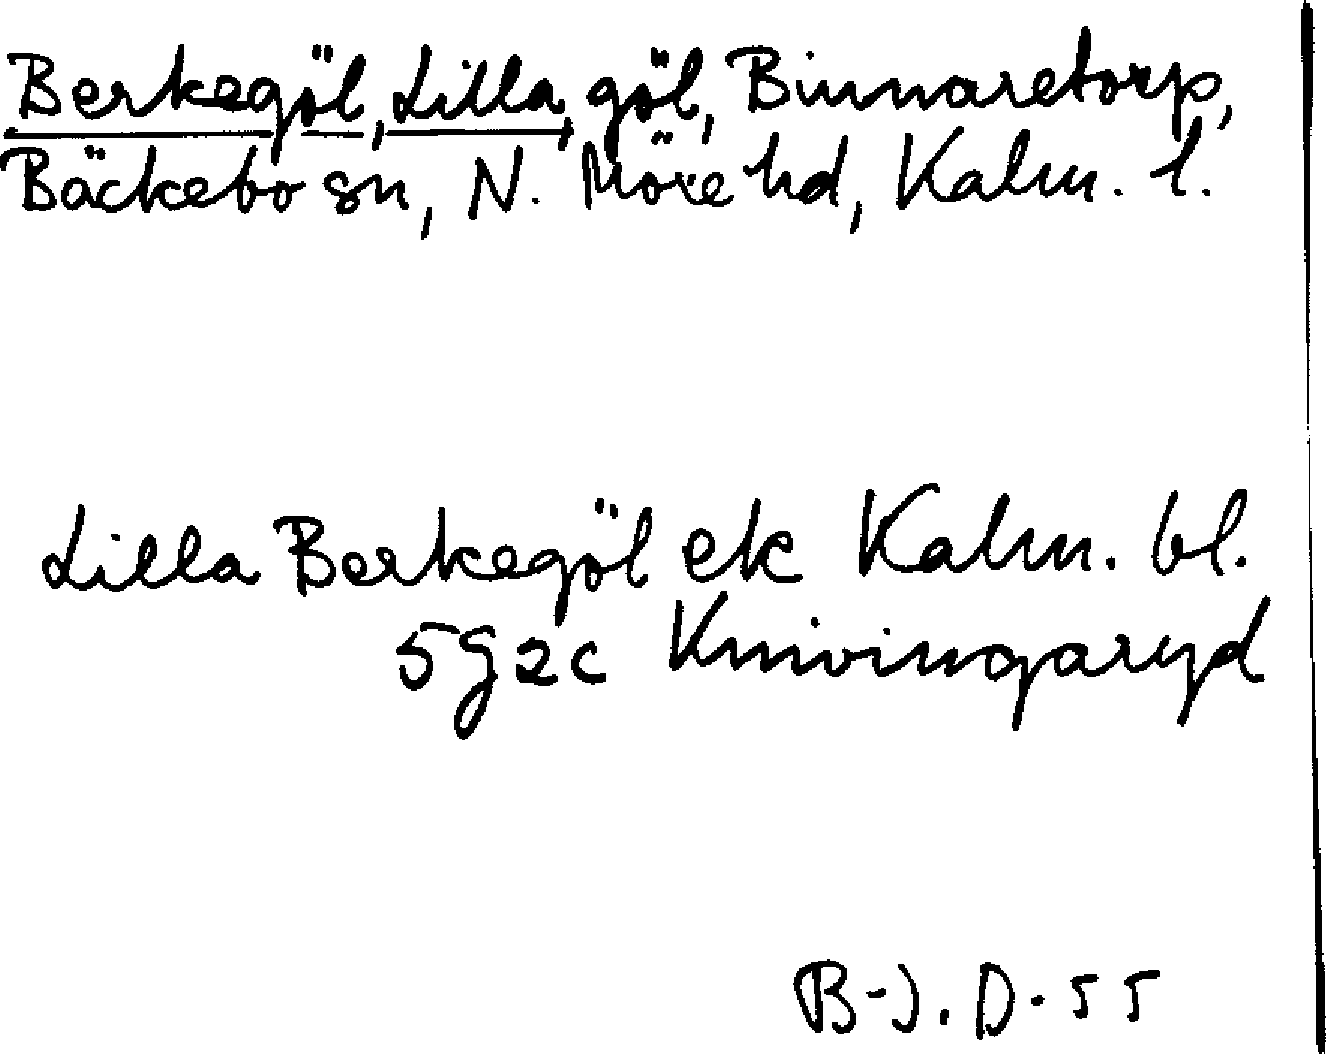 Berkegöl, Lilla, göl, Binnaretorp,
Bäckebo sn, N. Möre hd, Kalm. l.
Lilla Berkegöl ek Kalm. bl.
5g2c Knivingaryd
B-J. D. 55